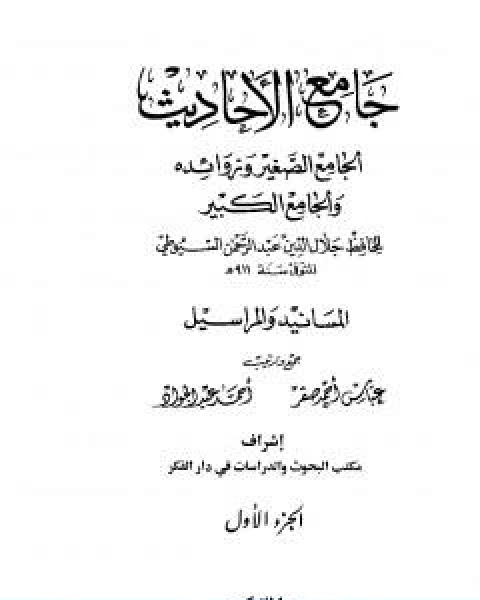 جامع الأحاديث
الجامع الصغير وزوائده
والجامع الكبير
للحافظ جلال الدين عبد الرحمن السيوطي
المتوفى سنة ٩١١ هـ
المسانيد والمراسيل
جمع وترتيب
عباس أحمد صقر أحمد عبد الجواد
إشراف
مكتب البحوث والدراسات في دار الفكر
الجزء الأول